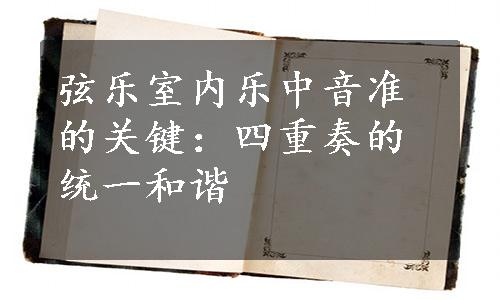 弦乐室内乐中音准
的关键：四重奏的
统一和谐